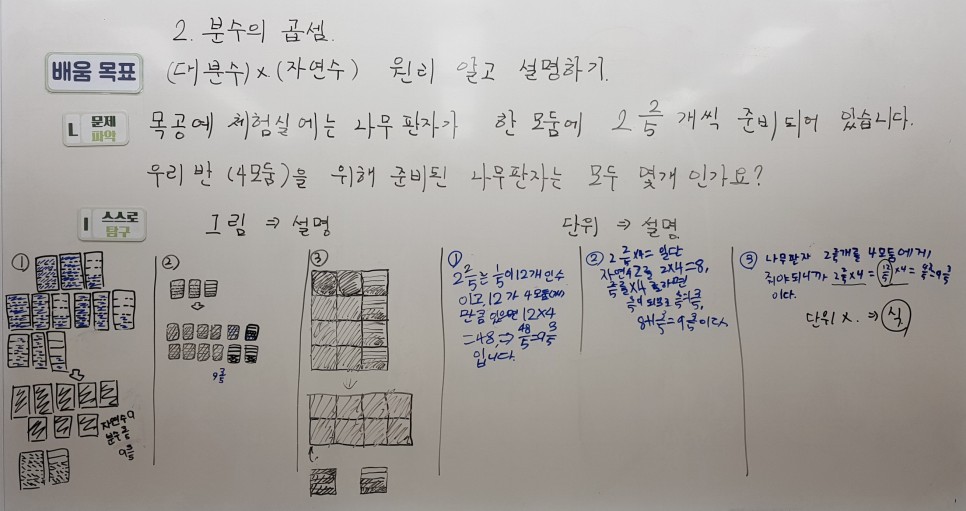 2. 분수의 곱셈.
배움 목표 (대분수)×(자연수) 원리 알고 설명하기.
L 문제 파악 목공예 체험실에는 나무 판자가 한 모둠에 2 2/5 개씩 준비되어 있습니다.
우리 반 (4모둠)을 위해 준비된 나무판자는 모두 몇개 인가요?
I 스스로 탐구 그림 ⇒ 설명 단위 ⇒ 설명
①
자연수 9
분수 3/5
9 3/5
②
9 3/5
③
①
2 2/5는 1/5이 12개인수
이고 12가 4모둠
만큼 있으면 12×4
=48, ⇒ 48/5=9 3/5
입니다.
② 2 2/5×4= 일단
자연수 2를 2×4=8,
2/5×4
8+1 3/5=9 3/5이다
③ 나무판자 2 2/5개를 4모둠에게,
줘야되니까 2 2/5×4=(12/5)×4=48/5=9 3/5
이다.
단위 ×. ⇒ 식